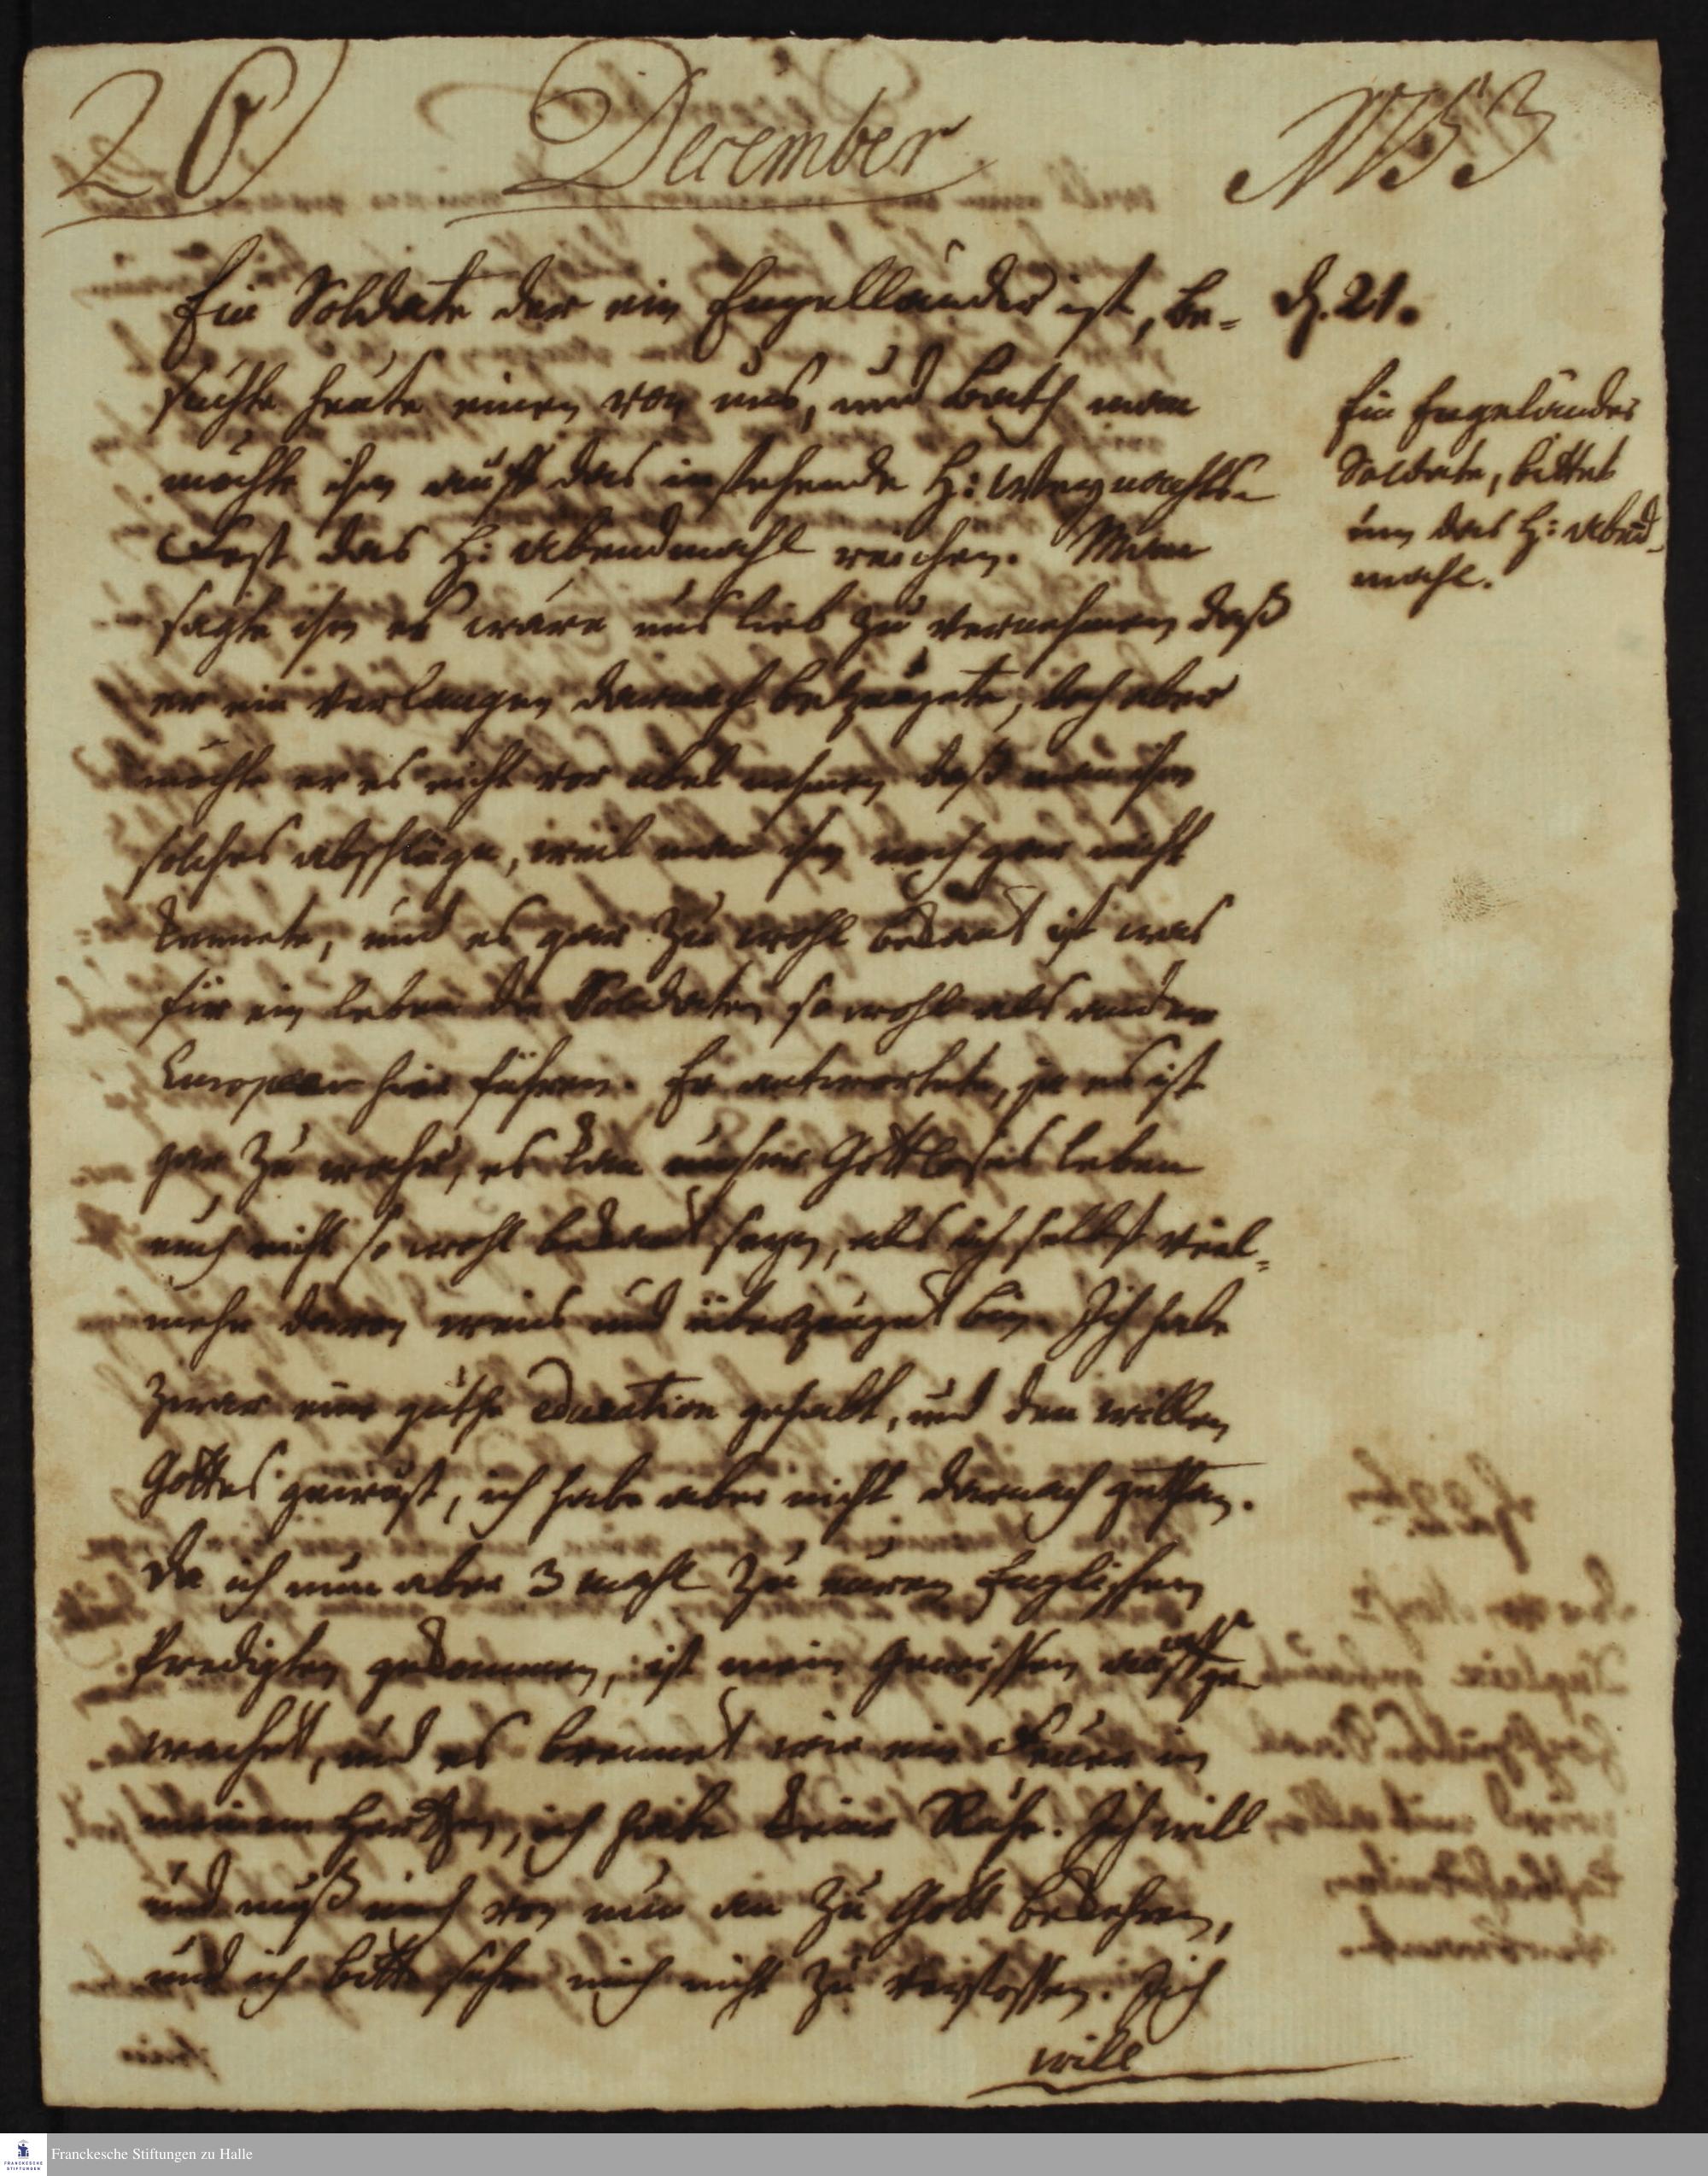 20
December
1753
Ein Soldate der ein Engelländer ist, be-
suchte heute einen von uns, und bath man
möchte ihm auff das instehende H: Weynachts-
Fest das H: Abendmahl reichen. Man
sagte ihm es wäre uns lieb zu vernehmen daß
er ein Verlangen darnach bezeugete, doch aber
möchte er es nicht vor übel nehmen daß man ihm
solches abschlüge, weil man ihn noch gar nicht
kennete, und es gar zu wohl bekant ist was
für ein leben die Soldaten so wohl als andere
Europaeer hier führen. Er antwortete, ja es ist
gar zu wahr, es kan unser Gottloses leben
euch nicht so wohl bekant seyn, als ich selbst viel-
mehr davon weis und überzeuget bin. Ich habe
zwar eine guthe education gehabt, und den willen
Gottes gewust, ich habe aber nicht darnach gethan.
Da ich nun aber 3 mahl zu euren Englischen
Predigten gekommen, ist mein Gewissen auffge-
wachet, und es brennet wie ein Feuer in
meinem Hertzen, ich habe keine Ruhe. Ich will
und muß mich von nun an zu Gott bekehren,
und ich bitte sehr mich nicht zu verstossen. Ich
will
d. 21.
Ein Engeländer
Soldate, bittet
um das H: Abend-
mahl.
Franckesche Stiftungen zu Halle
FRANCKESCHE
STIFTUNGEN